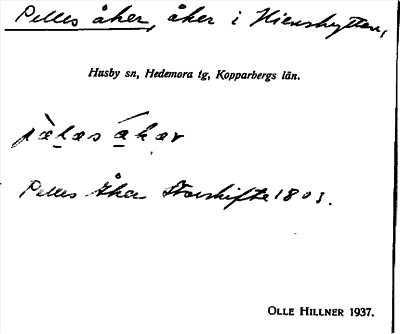 Pelles åker, åker i Hienshyttan,
Husby sn, Hedemora tg, Kopparbergs län.
Pelles åker Storskifte 1803.
OLLE HILLNER 1937.